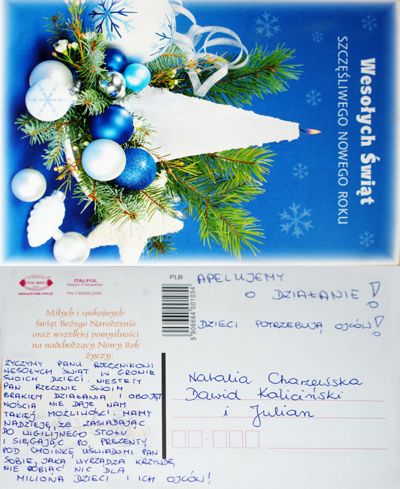 Wesołych Świąt
SZCZĘŚLIWEGO NOWEGO ROKU
ITALPOL
PLB
5906664001054
Miłych i spokojnych
Świąt Bożego Narodzenia
oraz wszelkiej pomyślności
na nadchodzący Nowy Rok
życzy:
ŻYCZYMY PANU RZECZNIKOWI
WESOŁYCH ŚWIĄT W GRONIE
SWOICH DZIECI. NIESTETY
PAN RZECZNIK SWOIM
BRAKIEM DZIAŁANIA I OBOJĘT
NOŚCIĄ NIE DAJE NAM
TAKIEJ MOŻLIWOŚCI. MAMY
NADZIEJĘ, ŻE ZASIADAJĄC
DO WIGILIJNEGO STOŁU
I SIĘGAJĄC PO PREZENTY
POD CHOINKĘ UŚWIADOMI PAN
SOBIE, JAKĄ WYRZĄDZA KRZYWDĘ,
NIE ROBIĄC NIC DLA
MILIONA DZIECI I ICH OJCÓW!
APELUJEMY
O DZIAŁANIE!
DZIECI POTRZEBUJĄ OJCÓW!
Natalia
Dawid Kaliciński
i Julian